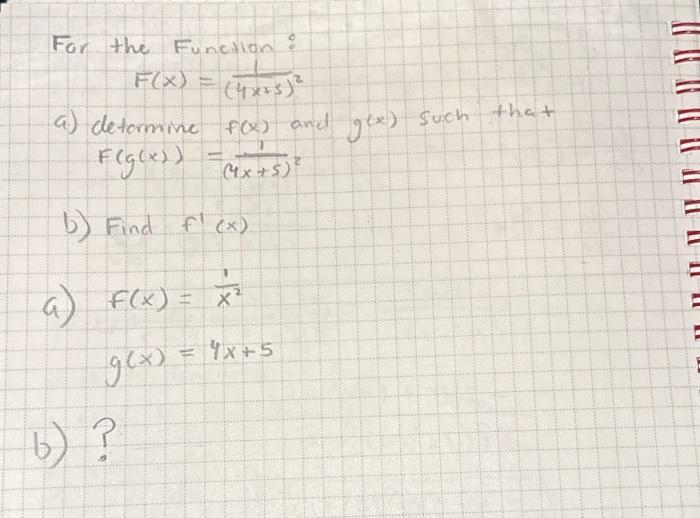 For the Function :
F(x) = 1/(4x+5)²
a) determine f(x) and g(x) such that
F(g(x)) = 1/(4x+5)²
b) Find f'(x)
a) f(x) = 1/x²
g(x) = 4x+5
b) ?